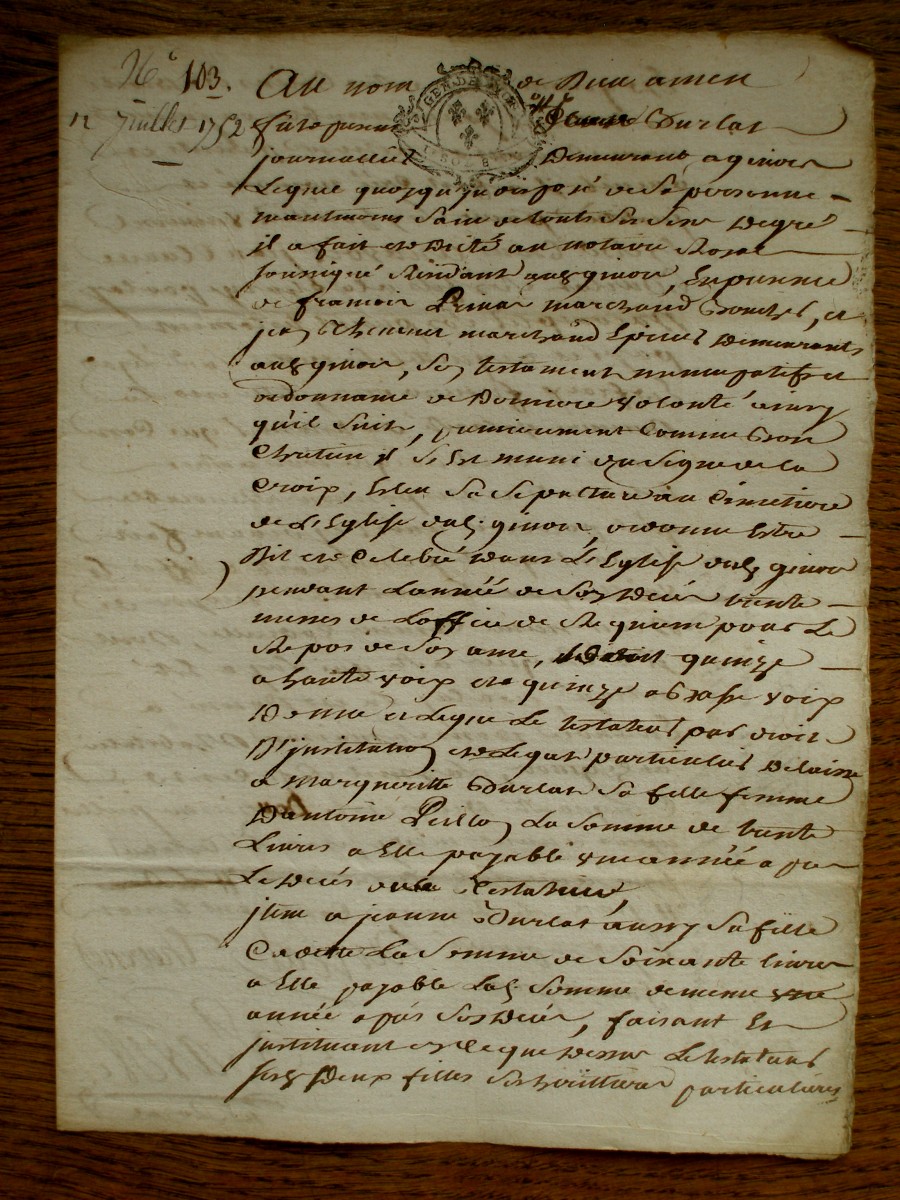 N° 103.
12 juillet 1752
Au nom de Dieu amen
fut present Durlat
journallier Demeurant a
Lequel quoyqu'indisposé de sa personne
neantmoins sain de touts ses sens De gré
il a fait et Dicté au notaire Royal
soussigné Residant aud. , En presence
de francois marchand Boucher, et
jean marchand Epicier Demeurants
aud. , son testament nuncupatif et
ordonnance de Derniere volonté ainsy
qu'il suit, premierement Comme Bon
Chretien il s'est muni du signe de la
Croix, Esleu sa sepulture au Cimetiere
de L'Eglise dud. , ordonne Estre
Dit et Celebré Dans L'Eglise dud.
pendant L'année de son Deces trente
messes de L'office de Requiem pour Le
Repos de son ame, quinze
a haute voix et quinze a Basse voix
Donne et Legue Le testateur par droit
D'institution et de Legat particulier Delaisse
a Margueritte Durlat sa fille femme
D'antoine La Somme de trente
Livres a Elle payable une année apres
Le Deces dud. Testateur,
jtem a jeanne Durlat aussy sa fille
Cadette La Somme de Soixante livres
a Elle payable Lad. Somme de meme une
année après son Deces, faisant Et
jnstituant Le testateur
sesd. Deux filles ses heritieres particulieres